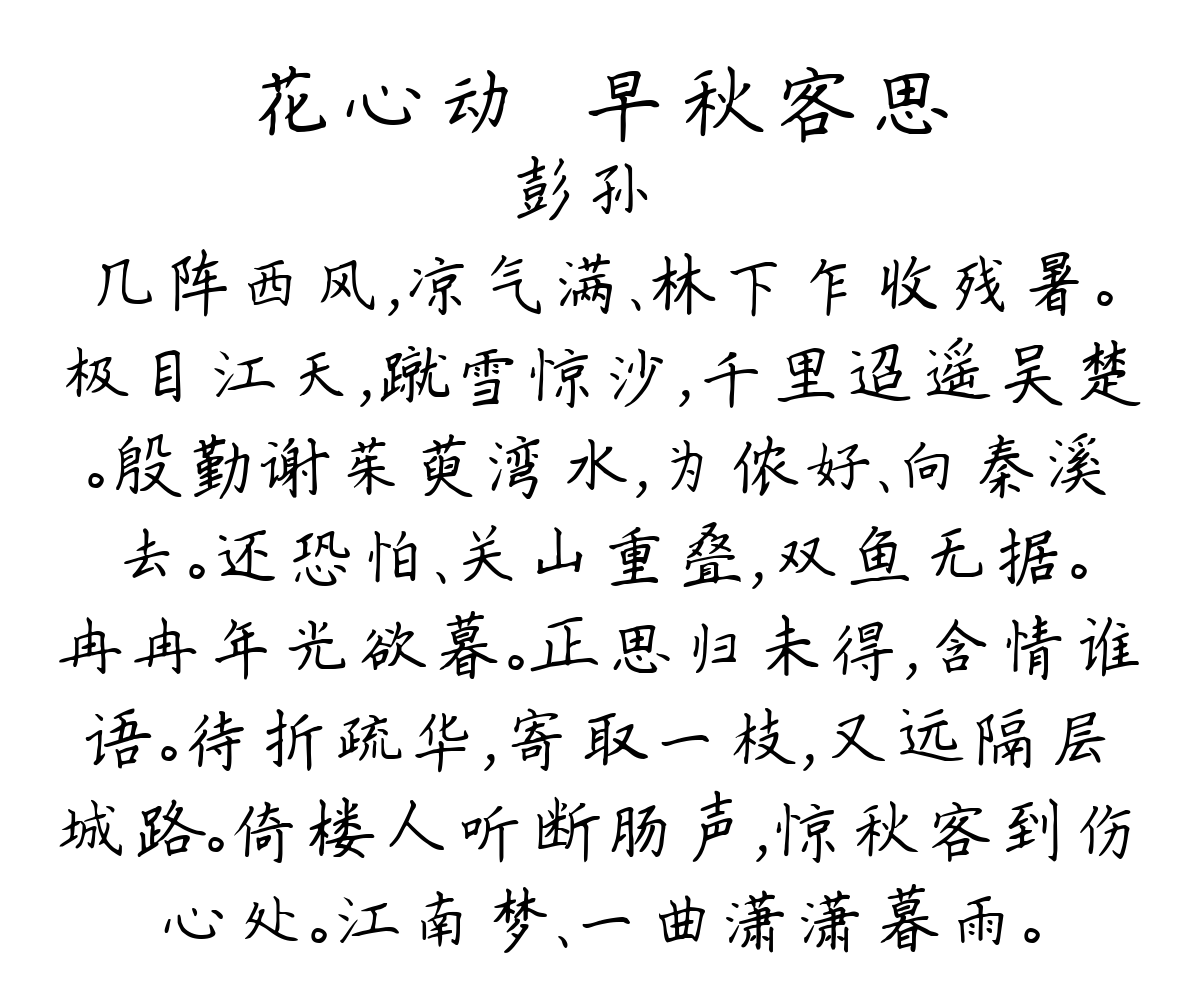 花心动 早秋客思
彭孙
几阵西风,凉气满、林下乍收残暑。
极目江天,蹴雪惊沙,千里迢遥吴楚
。殷勤谢茱萸湾水,为侬好、向秦溪
去。还恐怕、关山重叠,双鱼无据。
冉冉年光欲暮。正思归未得,含情谁
语。待折疏华,寄取一枝,又远隔层
城路。倚楼人听断肠声,惊秋客到伤
心处。江南梦、一曲潇潇暮雨。